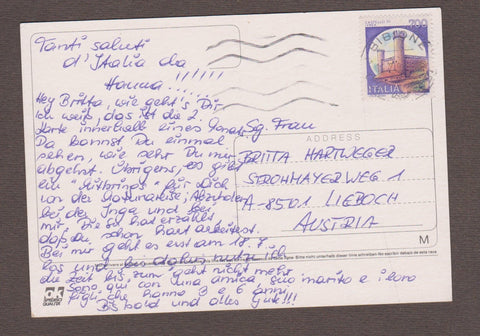 Tanti saluti
d'Italia da
Hanna!!!!!!
Hey Britta, wie geht's Dir
Ich weiß, das ist die 2.
Karte innerhalb eines Monats
Da kannst Du einmal
sehen, wie sehr Du mir
abgehst. Übrigens, es gibt
ein "Mitbringsl" für Dich
von der Maturareise; Abzuholen
bei der Inga und bei
mir. Die hat erzählt,
daß Du schon hart arbeitest.
Bei mir geht es erst am 18.7.
los und bis dahin nutz ich
die Zeit bis zum geht nicht mehr
Sono qui con una amica suo marito e i loro
figli che hanno 3 e 6 anni.
Bis bald und alles Gute!!!
700
ITALIA
BIBIONE
Sg. Frau
ADDRESS
BRITTA HARTWEGER
STROHMAYERWEG 1
A-8501 LIEBOCH
AUSTRIA
M
QUALITÀ